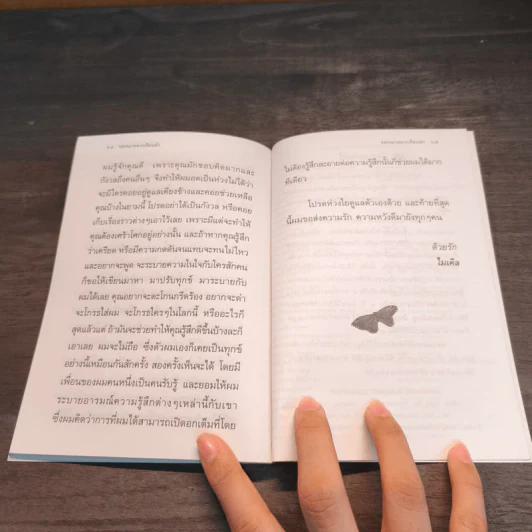 ผมรู้จักคุณดี เพราะคุณมักชอบคิดมากและ
กังวลถึงคนอื่นๆ จึงทำให้ผมอดเป็นห่วงไม่ได้ว่า
จะมีใครคอยอยู่ดูแลเคียงข้างและคอยช่วยเหลือ
คุณบ้างในยามนี้ โปรดอย่าได้เป็นกังวล หรือคอย
เก็บเรื่องราวต่างๆเอาไว้เลย เพราะมีแต่จะทำให้
คุณต้องเศร้าโศกอยู่อย่างนั้น และถ้าหากคุณรู้สึก
ว่าเครียด หรือมีความกดดันจนแทบจะทนไม่ไหว
และอยากจะพูด จะระบายความในใจกับใครสักคน
ก็ขอให้เขียนมาหา มาปรับทุกข์ มาระบายกับ
ผมได้เลย คุณอยากจะตะโกนกรีดร้อง อยากจะด่า
จะโกรธใส่ผม จะโกรธใครๆในโลกนี้ หรืออะไรก็
สุดแล้วแต่ ถ้ามันจะช่วยทำให้คุณรู้สึกดีขึ้นบ้างละก็
เอาเลย ผมจะไม่ถือ ซึ่งตัวผมเองก็เคยเป็นทุกข์
อย่างนี้เหมือนกันสักครั้ง สองครั้งเห็นจะได้ โดยมี
เพื่อนของผมคนหนึ่งเป็นคนรับรู้ และยอมให้ผม
ระบายอารมณ์ความรู้สึกต่างๆเหล่านี้กับเขา
ซึ่งผมคิดว่าการที่ผมได้สามารถเปิดอกเต็มที่โดย
ไม่ต้องรู้สึกละอายต่อความรู้สึกนั้นก็ช่วยผมได้มาก
ทีเดียว
โปรดห่วงใยดูแลตัวเองด้วย และท้ายที่สุด
นี้ผมขอส่งความรัก ความหวังดีมายังทุกๆคน
ด้วยรัก
ไมเคิล